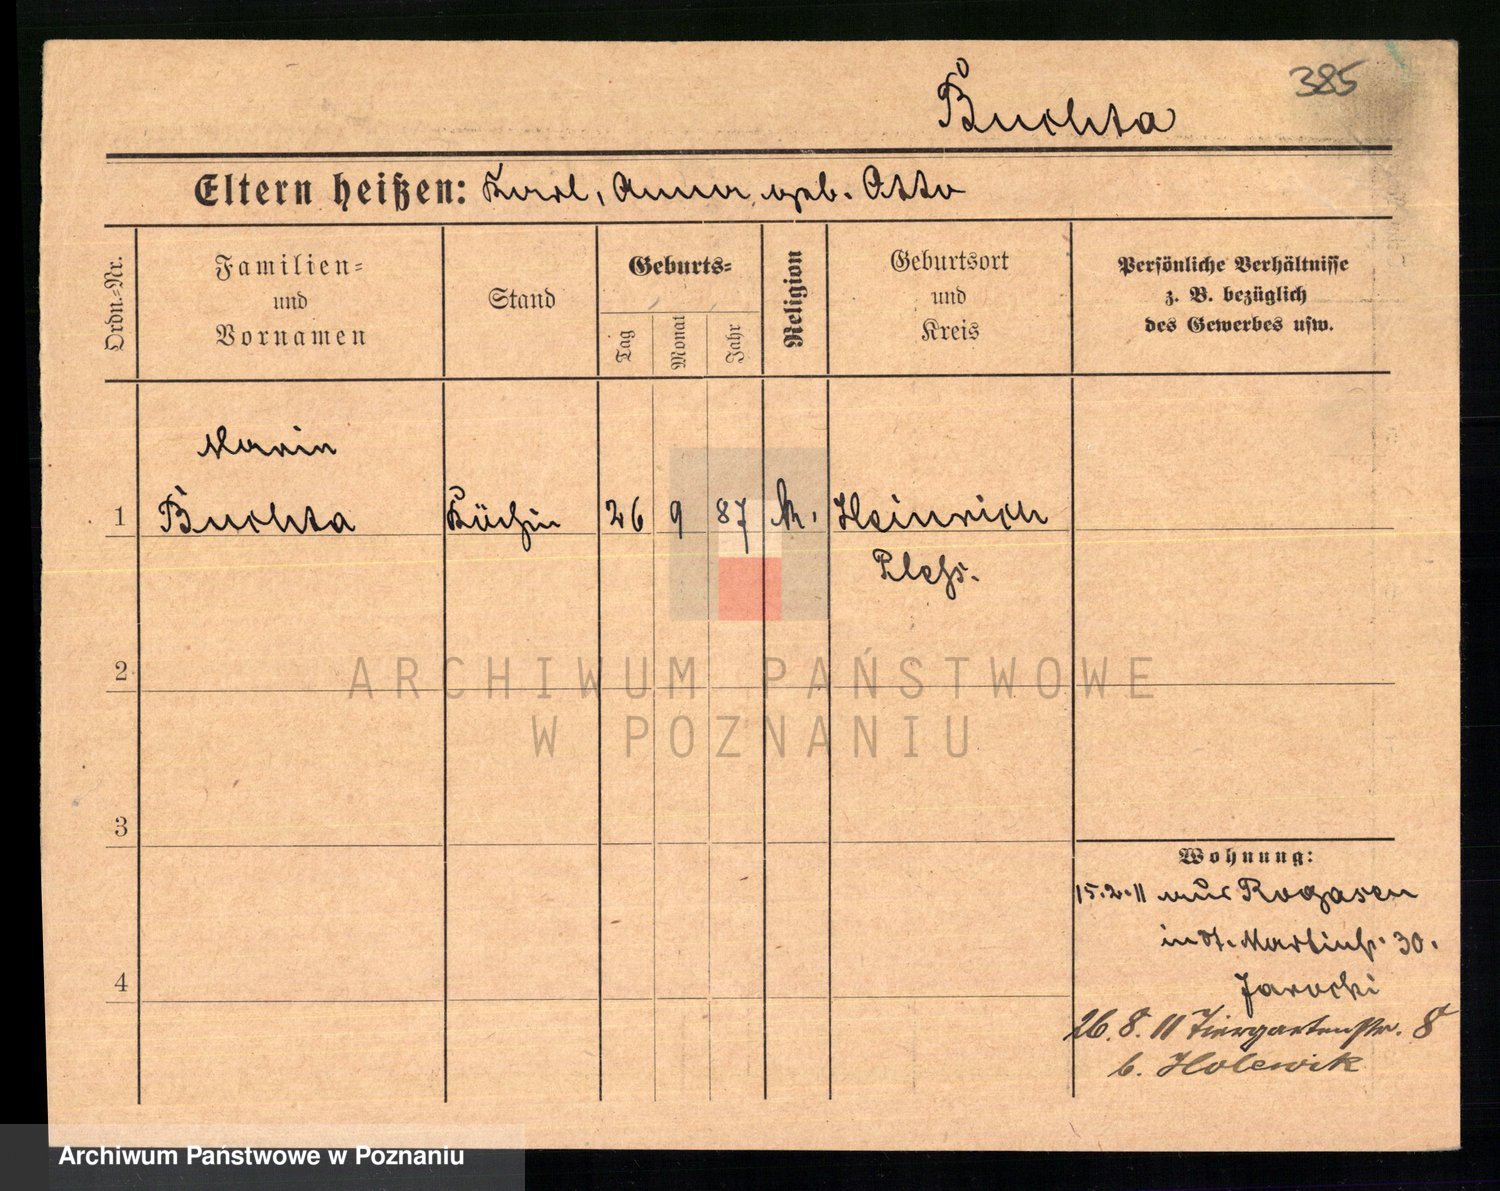 385
Buchta
Eltern heißen: Karl, Anna geb. Otto
Ordn.-Nr.
Familien- und Vornamen
Stand
Geburts-
Tag
Monat
Jahr
Religion
Geburtsort und Kreis
Persönliche Verhältnisse
z. B. bezüglich
des Gewerbes usw.
Marie
1 Buchta Köchin 26 9 87 k. Heinrich
Pleß.
2
3
4
Wohnung:
15.2.11 aus Rogasen
in St. Martinstr. 30.
Jarocki
26. 8. 11 Tiergartenstr. 8
b. Holewik
ARCHIWUM PAŃSTWOWE
W POZNANIU
Archiwum Państwowe w Poznaniu